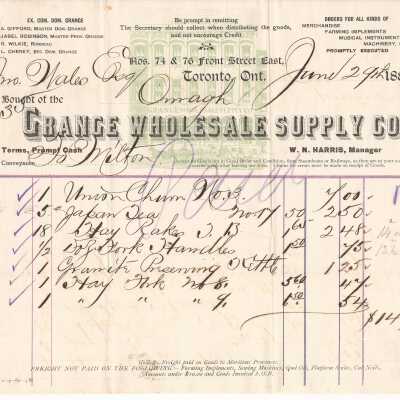 EX. COM. DOM. GRANGE
A. GIFFORD, MASTER DOM. GRANGE
JABEL ROBINSON, MASTER PROV. GRANGE
R. WILKIE, RONDEAU
L. CHENEY, SEC. DOM. GRANGE
Be prompt in remitting
The Secretary should collect when distributing the goods,
and not encourage Credit
ORDERS FOR ALL KINDS OF
MERCHANDISE
FARMING IMPLEMENTS
MUSICAL INSTRUMENT
MACHINERY,
PROMPTLY EXECUTED
Nos. 74 & 76 Front Street East,
Toronto, Ont. June 29th 188
Jno. Wales Esq
Omagh
Bought of the
GRANGE WHOLESALE SUPPLY CO
Terms, Prompt Cash
W. N. HARRIS, Manager
Conveyance
To Milton
Paid
1 Union Churn No 3 7.00
5 Japan Tea No 17 50 2 50
18 Hay Rakes 1 65 2 48
1/2 Doz Fork Handles 1 50 75
1 Granite Preserving Kettle 1 25
1 Hay Fork No 8. 5 60 47
1 " " " 9. 6 50 54
$14
FREIGHT NOT PAID ON THE FOLLOWING:— Farming Implements, Sewing Machines, Coal Oil, Platform Scales, Cut Nails,